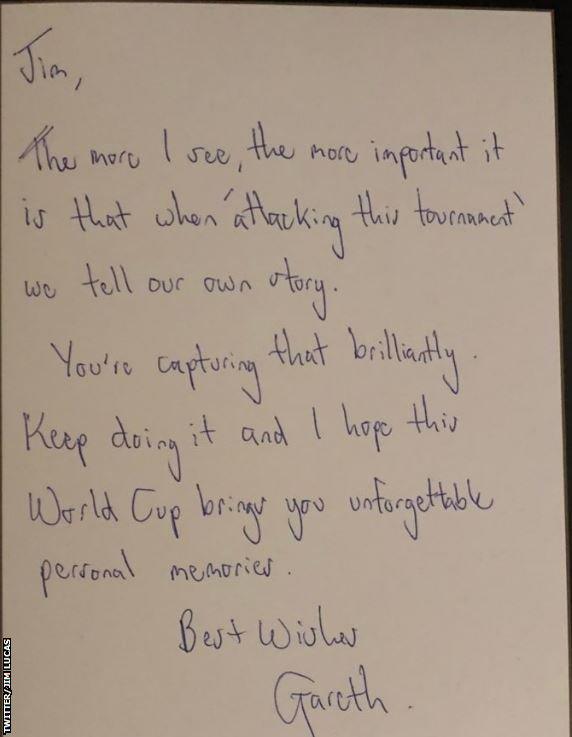 Jim,
The more I see, the more important it
is that when 'attacking this tournament'
we tell our own story.
You're capturing that brilliantly.
Keep doing it and I hope this
World Cup brings you unforgettable
personal memories.
Best Wishes
Gareth.
TWITTER/JIM LUCAS